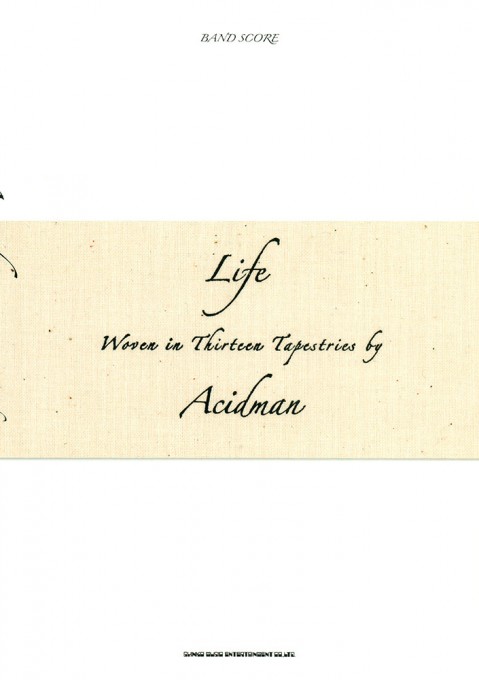 BAND SCORE
Life
Woven in Thirteen Tapestries by
Acidman
SHINKO MUSIC ENTERTAINMENT CO.,LTD.